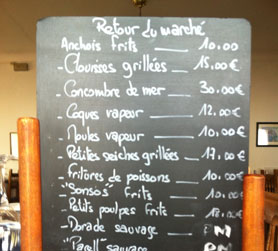 Retour du marché
Anchois frits __ 10.00
- Clovisses grillées __ 15.00€
- Concombre de mer __ 30.00€
- Coques vapeur __ 12.00€
- Moules vapeur __ 10.00€
- Petites seiches grillées __ 17.00€
- Fritures de poissons __ 10.00€
- "Sonsos" frits __ 10.00€
- Petits poulpes frits __ 18.00€
- Dorade sauvage __
- "Parell" sauvage